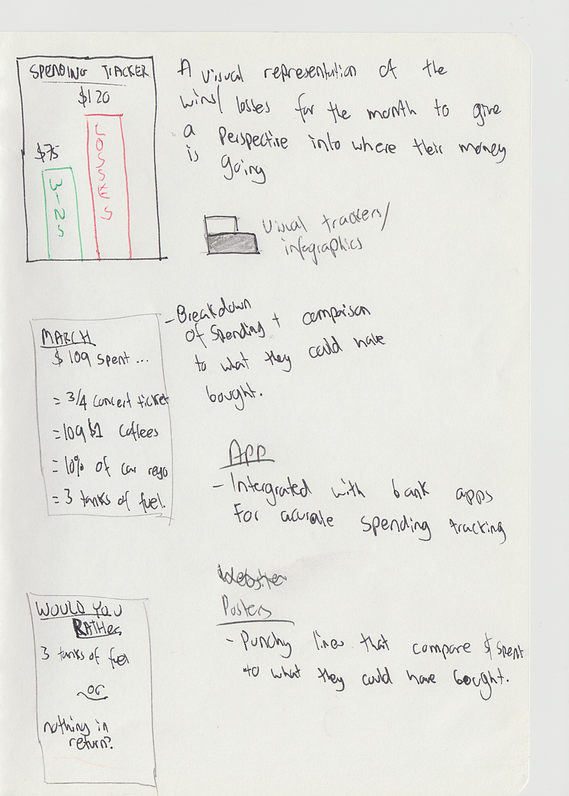 SPENDING TRACKER
$120
$75
WINS
LOSSES
A visual representation of the
wins/ losses for the month to give
a perspective into where their money
is going
Visual trackers/
infographics
MARCH
$109 spent ...
= 3/4 concert ticket
= 109 $1 coffees
= 10% of car rego
= 3 tanks of fuel.
- Breakdown
of spending + comparison
to what they could have
bought.
App
- Intergrated with bank apps
for accurate spending tracking
Website
Posters
- Punchy lines that compare $ spent
to what they could have bought.
WOULD YOU
RATHER
3 tanks of fuel
or
nothing in
return?